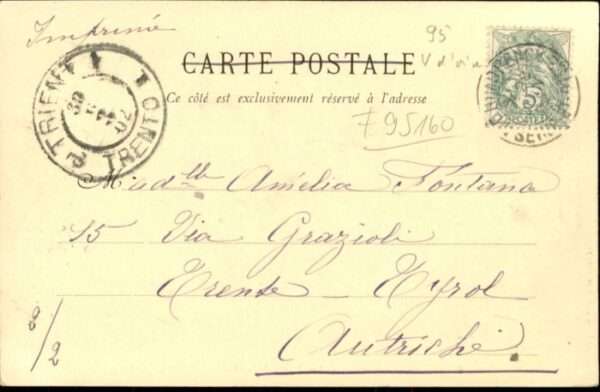 Imprimé
95
CARTE POSTALE
V d'
Ce côté est exclusivement réservé à l'adresse
F 95160
TRIENT 1
TRENTO
02
5
Madlle Amélia Fontana
15 Via Grazioli
Trente - Tyrol
Autriche.
8/2